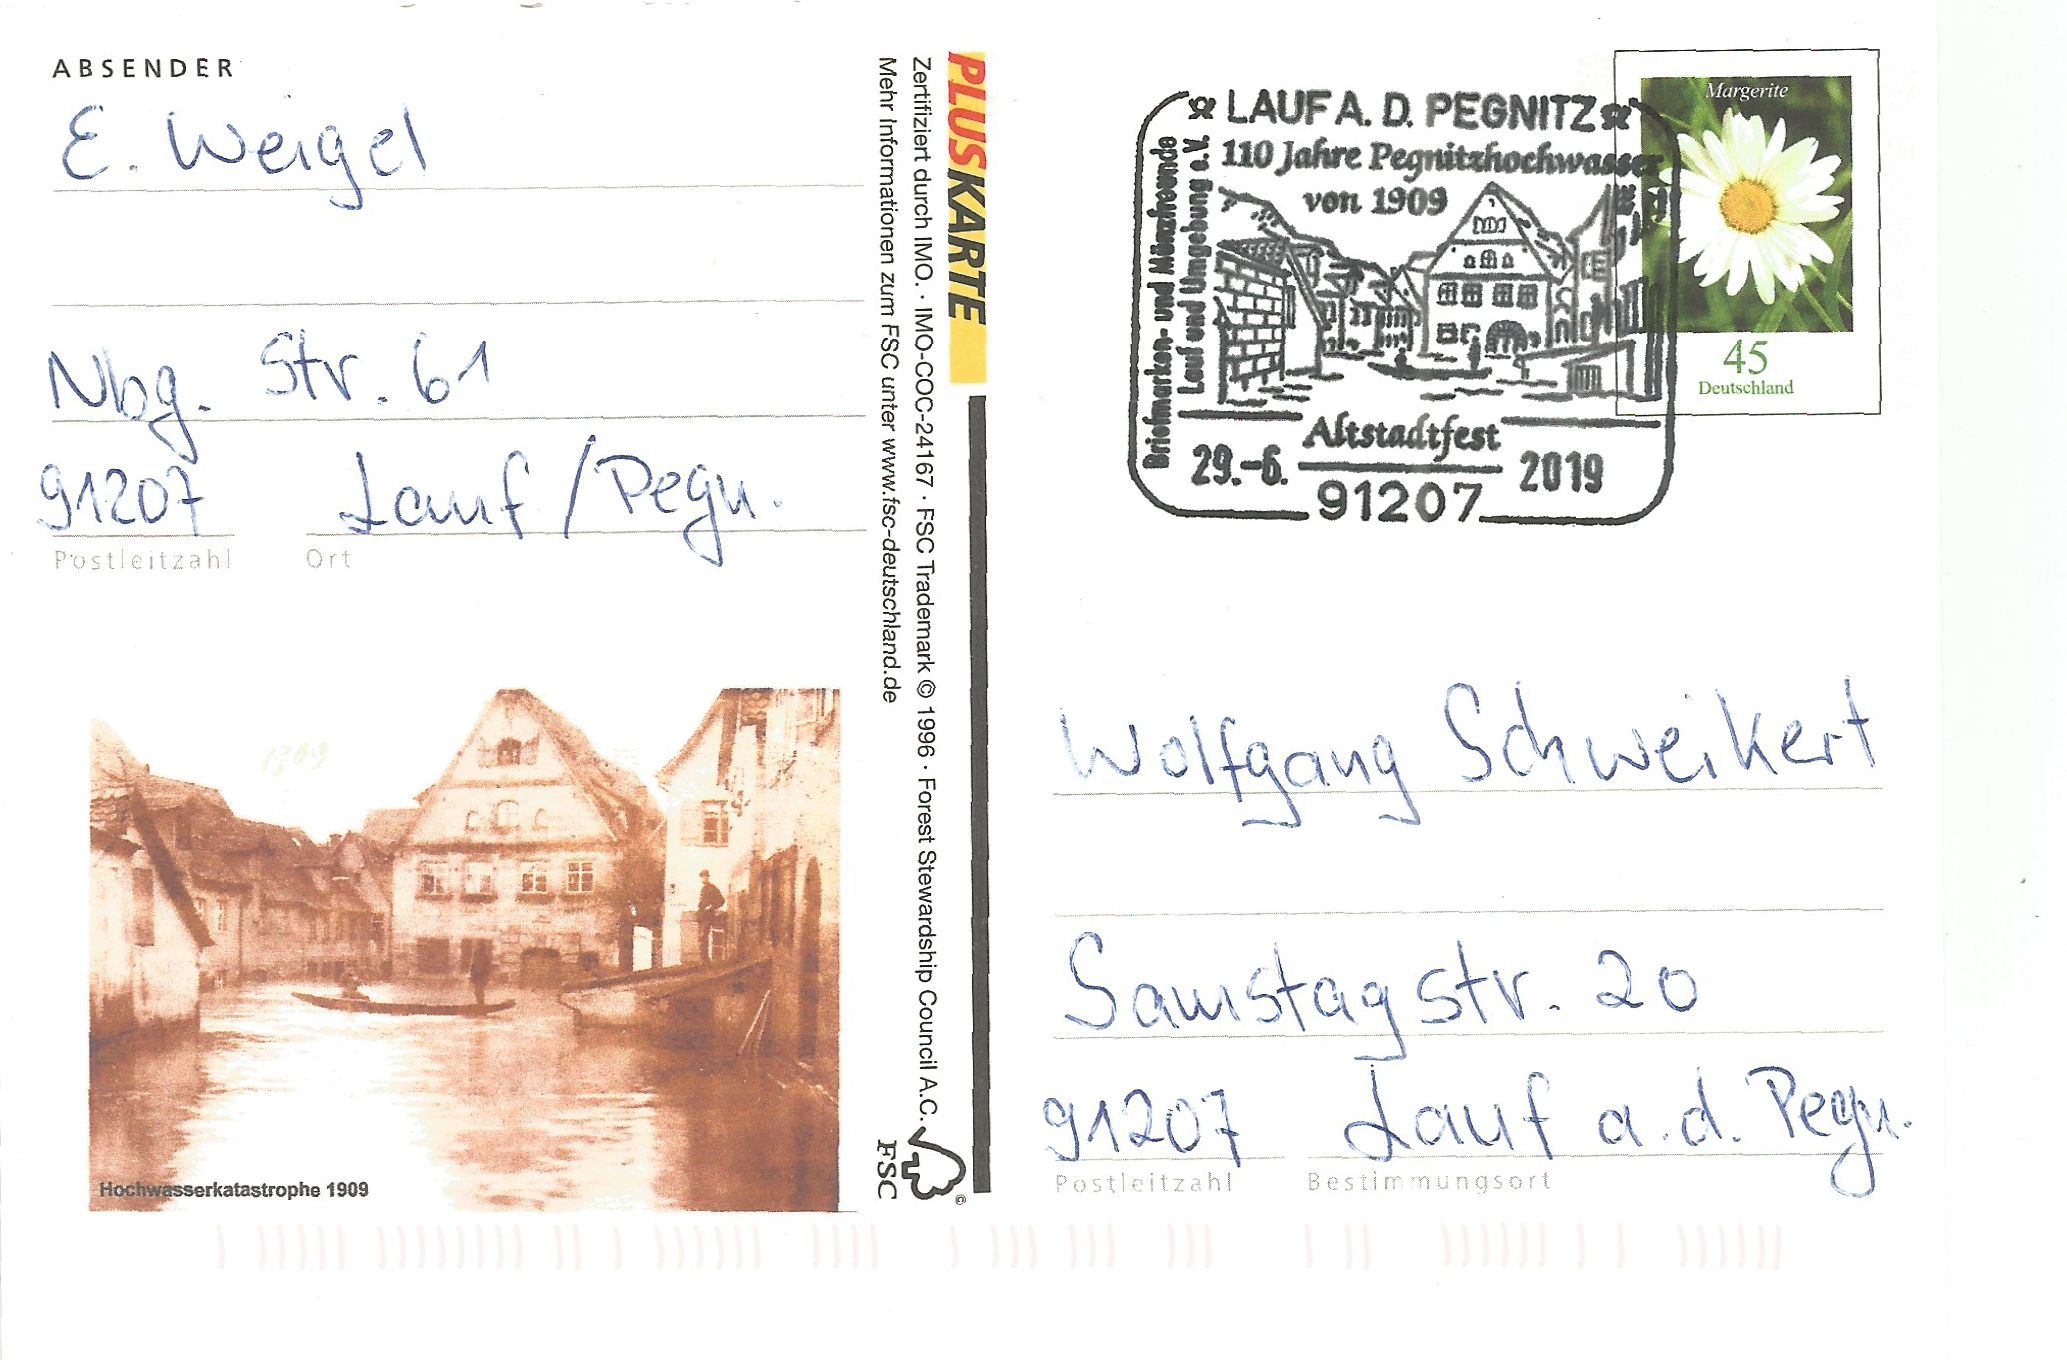 ABSENDER
E. Weigel
Nbg. Str. 61
91207 Lauf/Pegn.
Postleitzahl Ort
Hochwasserkatastrophe 1909
PLUSKARTE
Zertifiziert durch IMO. · IMO-COC-24167 · FSC Trademark © 1996 · Forest Stewardship Council A.C.
Mehr Informationen zum FSC unter www.fsc-deutschland.de
FSC
©
LAUF A. D. PEGNITZ
110 Jahre Pegnitzhochwasser
von 1909
Briefmarken- und Münzfreunde
Lauf und Umgebung e.V.
Altstadtfest
29.-6. 2019
91207
Margerite
45
Deutschland
Wolfgang Schweikert
Samstagstr. 20
91207 Lauf a.d. Pegn.
Postleitzahl Bestimmungsort